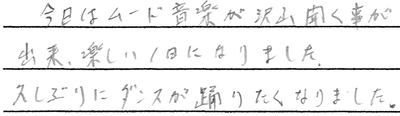 今日はムード音楽が沢山聞く事が
出来、楽しい1日になりました。
久しぶりにダンスが踊りたくなりました。